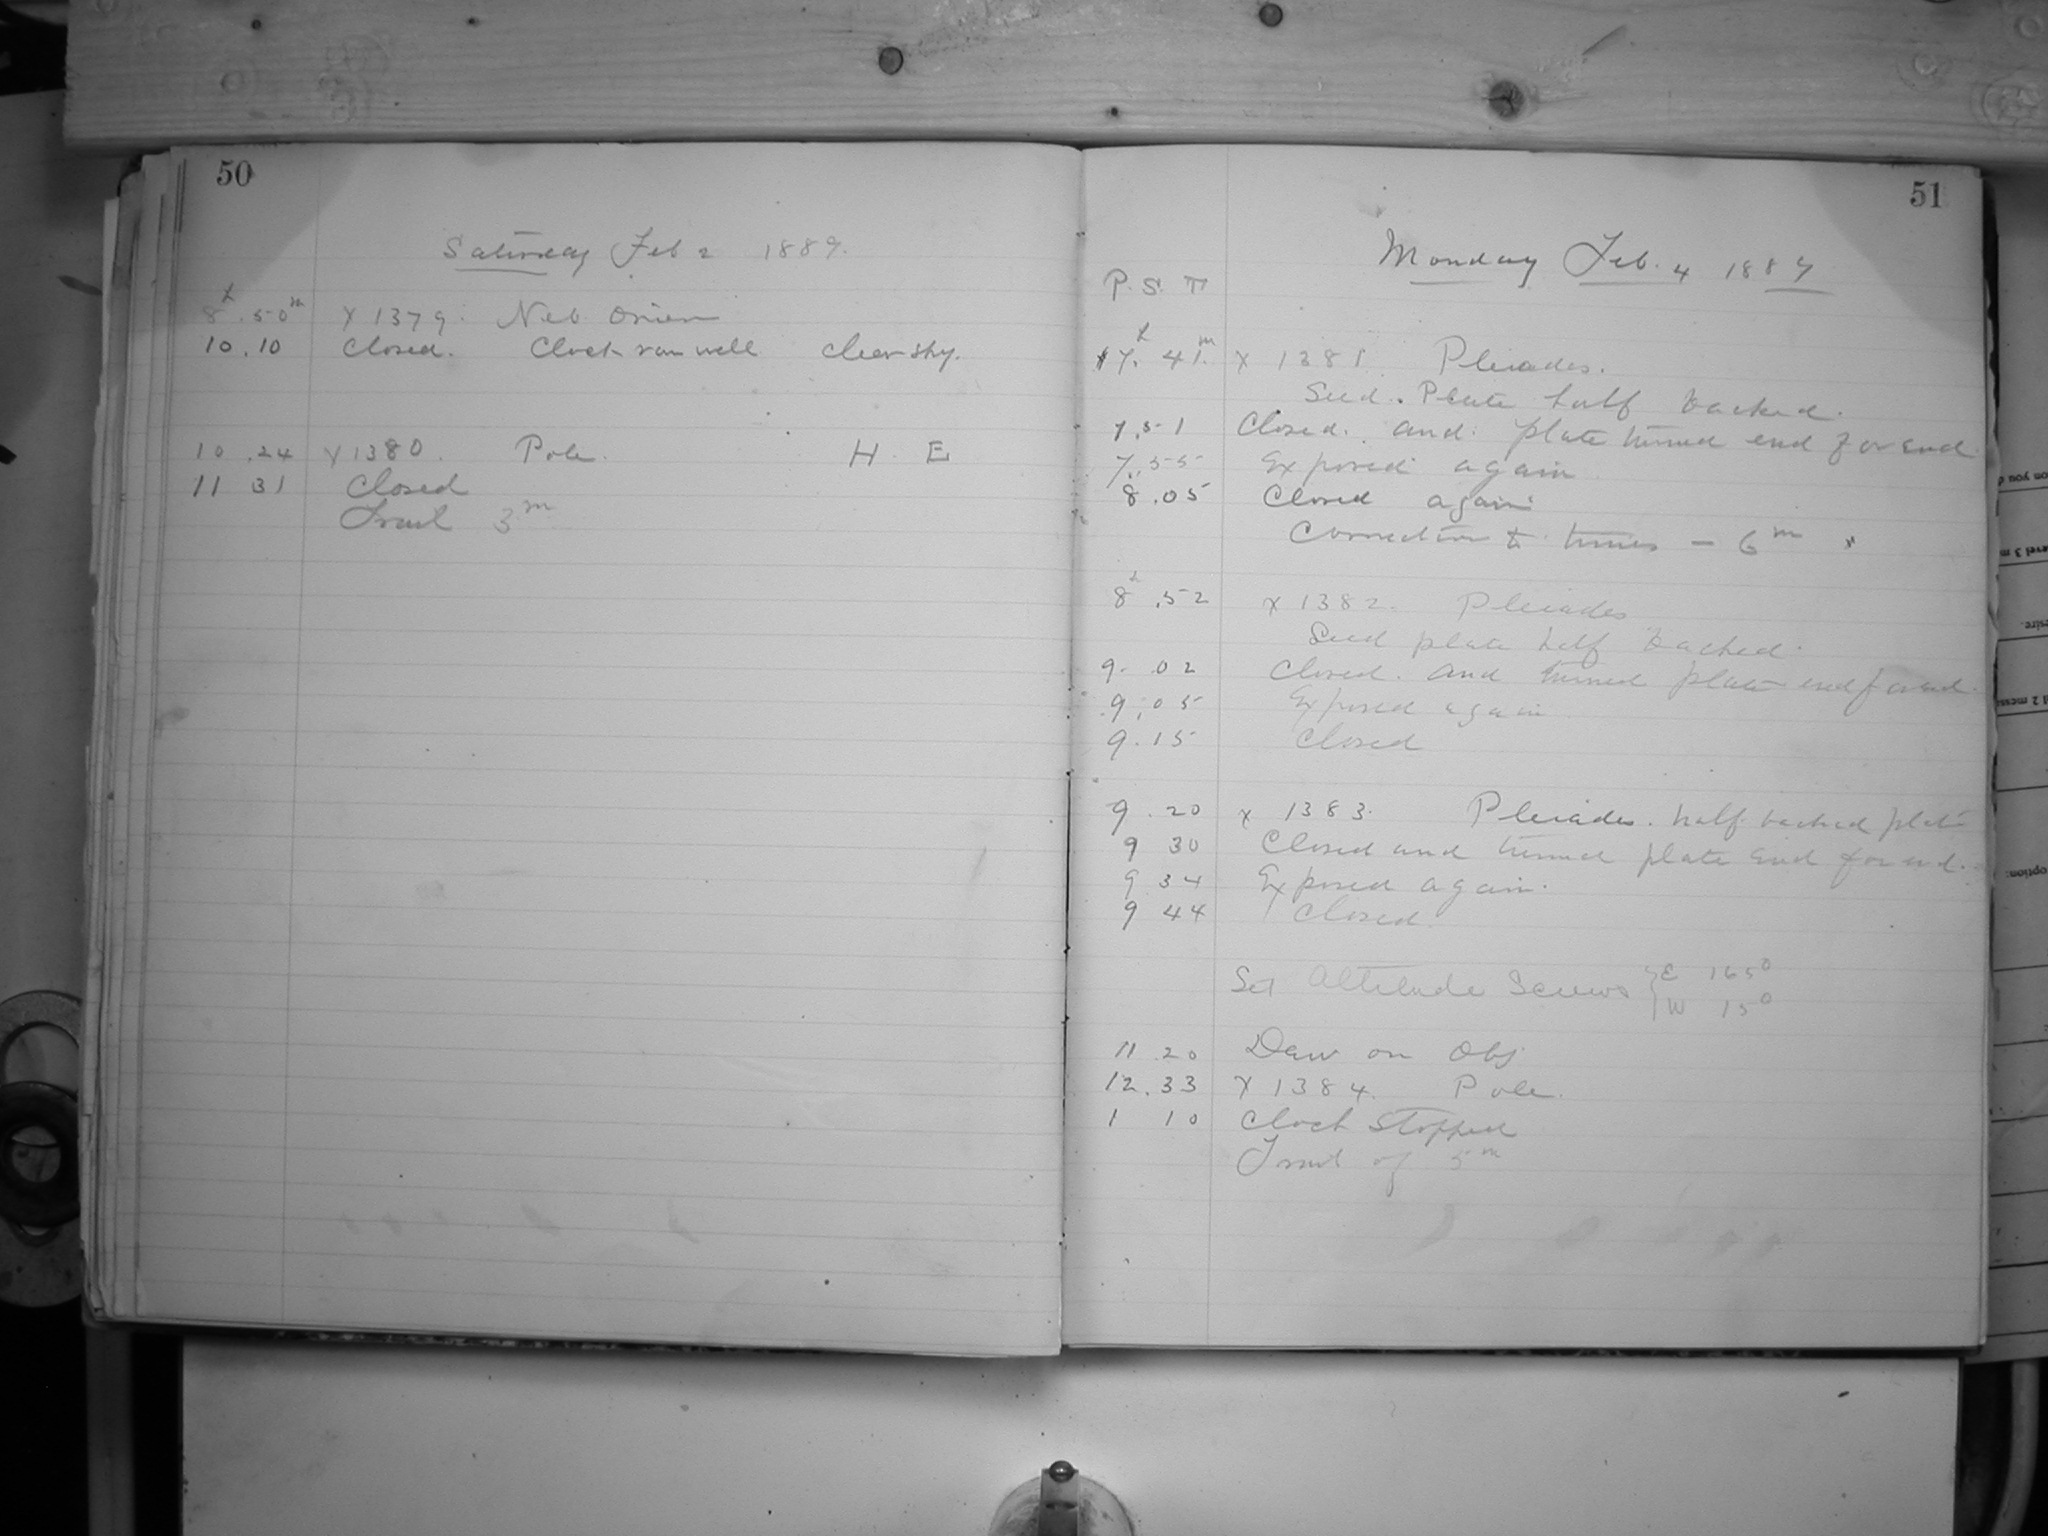 50
Saturday Feb 2 1889.
8h.50m X 1379. Neb Orion
10.10 Closed. Clock ran well clear sky.
10.24 X 1380. Pole. H. E
11 31 Closed
Trail 3m
51
Monday Feb. 4 1889
P. S. T
7h. 41m X 1381 Pleiades.
Seed. Plate half backed.
7.51 Closed. and plate turned end for end
7.55 Exposed again
8.05 Closed again
Correction to times - 6m
8h.52 X 1382. Pleiades
Seed plate half backed.
9. 02 Closed. and turned plate end for end.
9.05 Exposed again
9.15 Closed
9.20 X 1383. Pleiades. half backed plate
9 30 Closed and turned plate end for end.
9 34 Exposed again.
9 44 Closed.
Set Altitude Screws { E 165°
W 15°
11.20 Dew on Obj
12.33 X 1384. Pole.
1 10 Clock Stopped
Trail of 5m